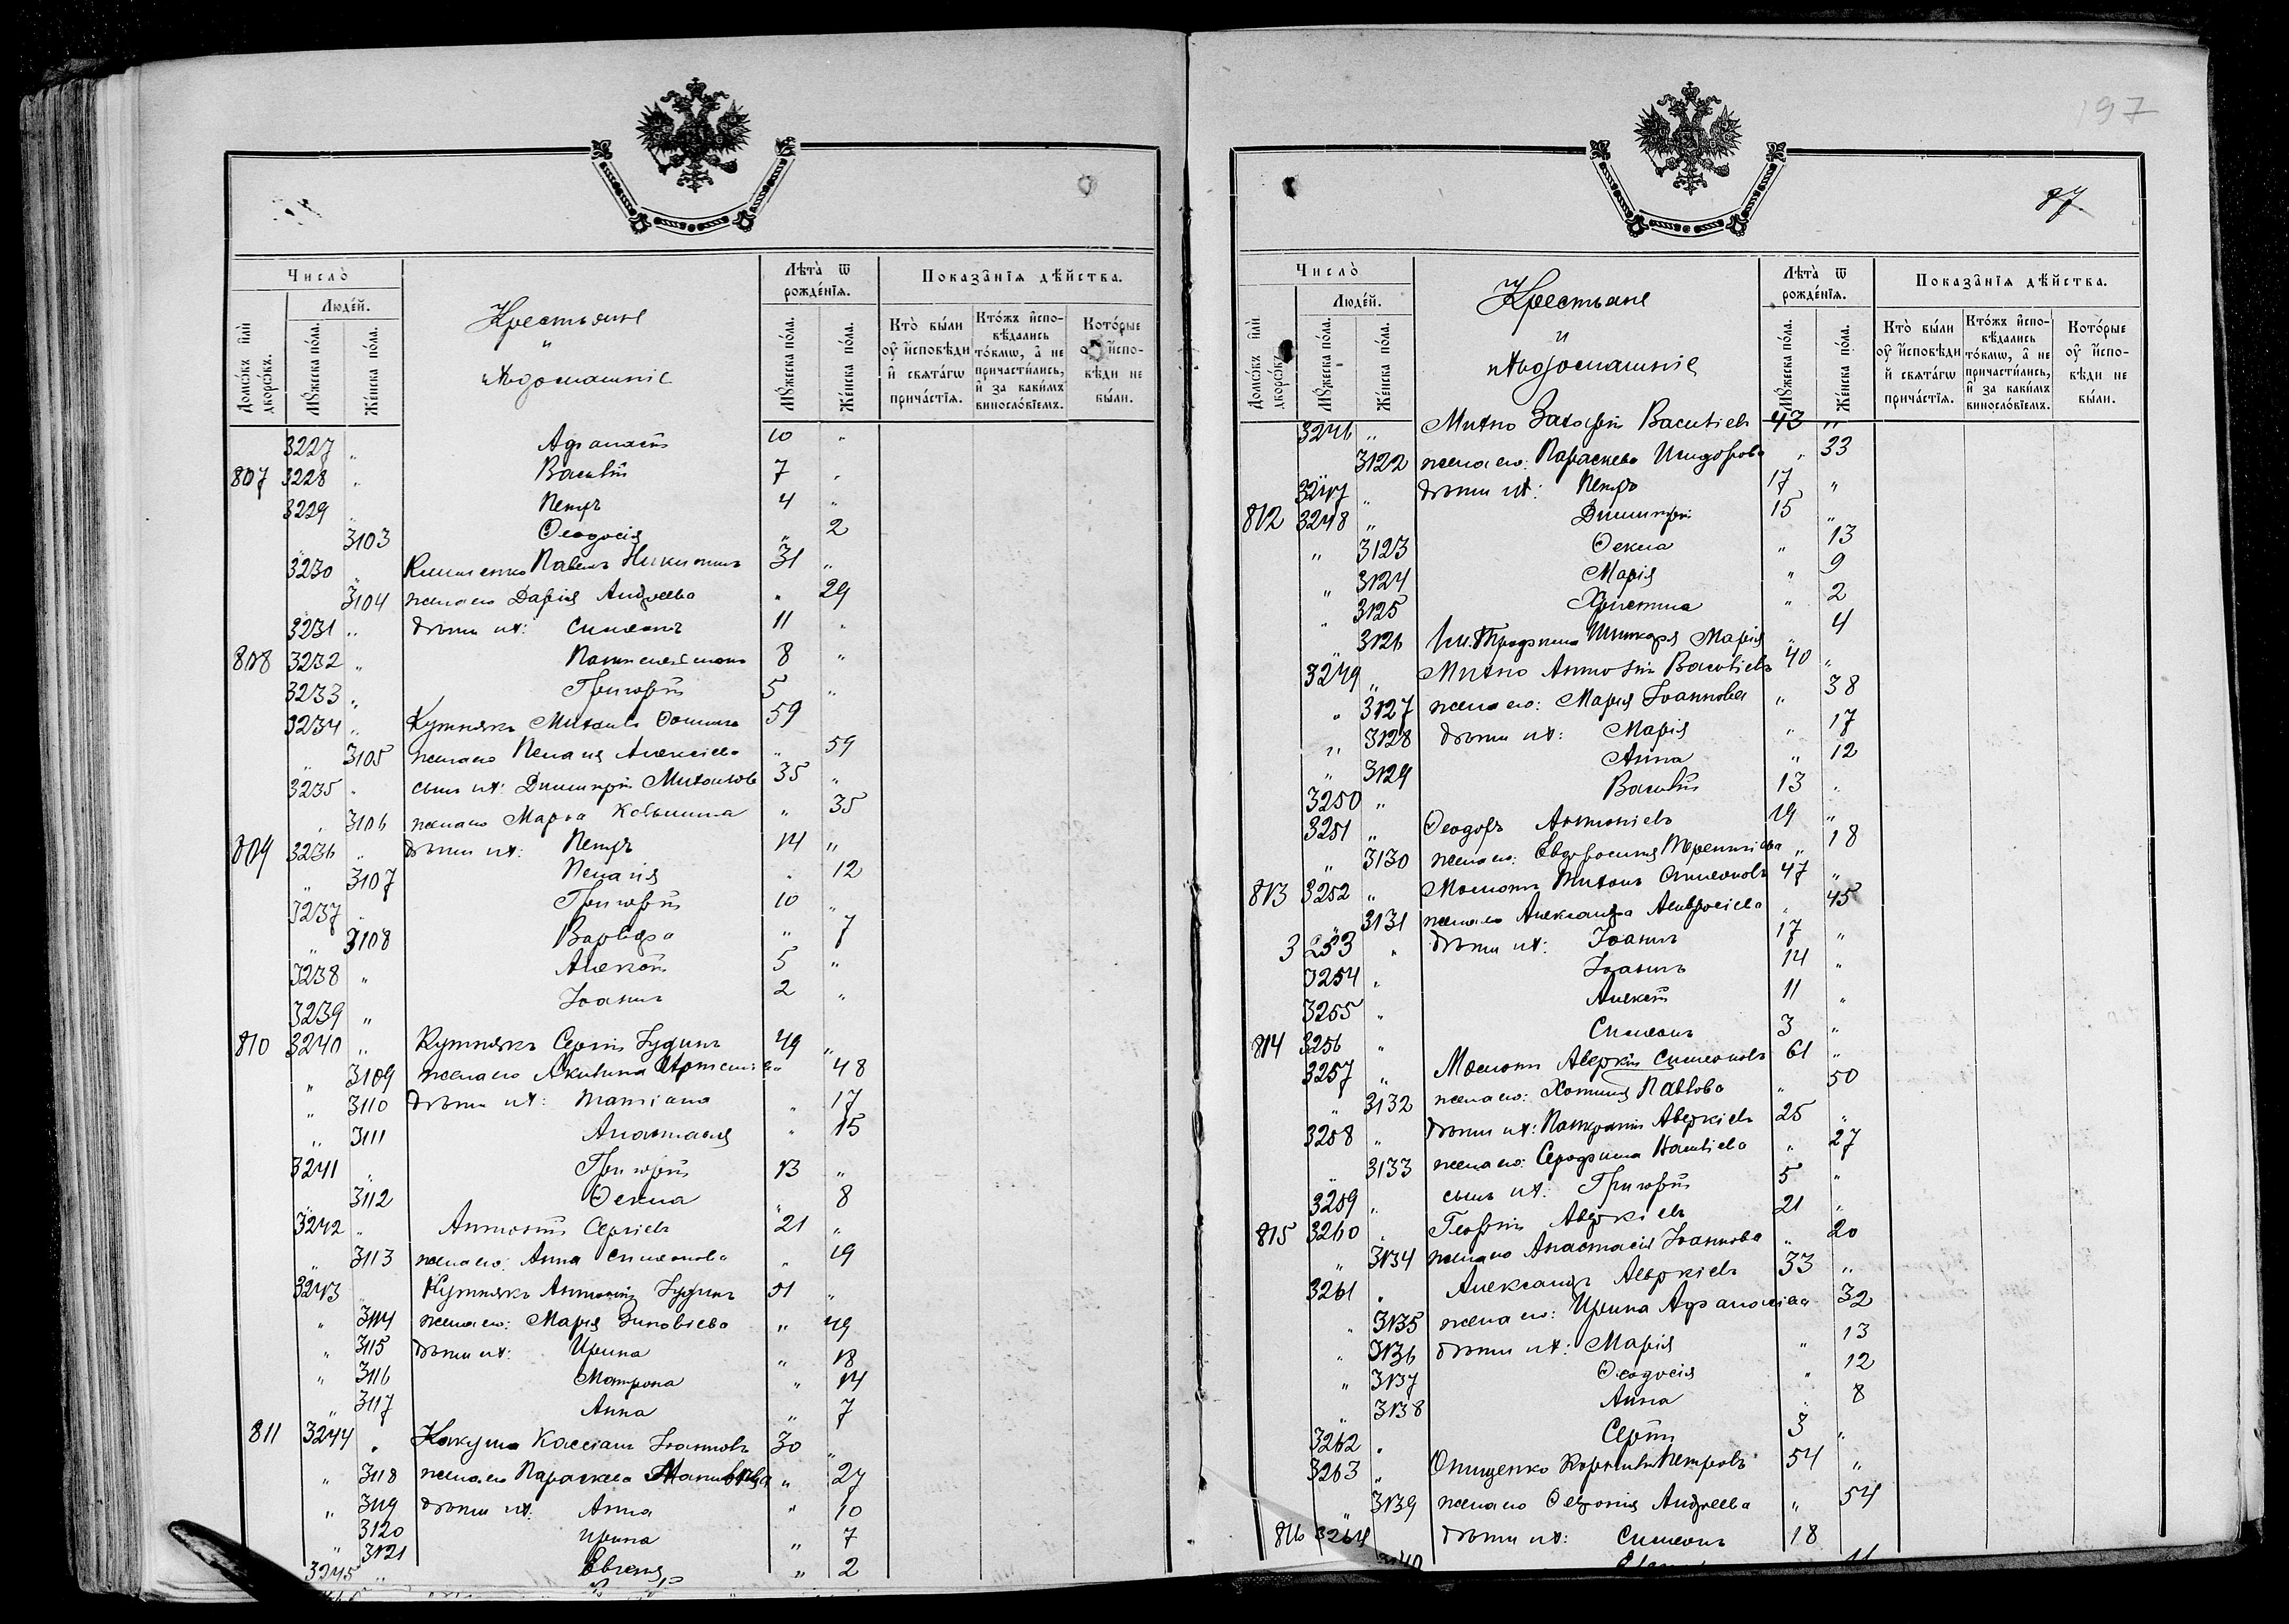 Число̀
Людей.
Домѡ́въ и҆лѝ дворѡ́въ.
Мꙋ́жеска по́ла.
Же́нска по́ла.
Крестьяне
и
Лѣ́та ѿ рожде́нїѧ.
Мꙋ́жеска по́ла.
Же́нска по́ла.
Показа̑нїѧ дѣ́йства.
Кто̀ бы́ли оу҆ и҆сповѣди и҆ свѧта́гѡ прича́стїѧ.
Кто́жъ и҆спо-вѣдались то́кмѡ, а҆ не причасти́лись, и҆ за каки́мъ винослові́емъ.
Кото́рые оу҆ и҆спо-вѣди не бы́ли.
3227 „ Афанасій 10 „
807 3228 „ Василій 7 „
3229 „ Петръ 4 „
„ 3103 Ѳеодосія „ 2
3230 „ Павелъ Никитинъ 31 „
„ 3104 жена его Дарія Андреева „ 29
3231 „ дѣти ихъ: Симеонъ 11 „
808 3232 „ Пантелеимонъ 8 „
3233 „ Григорій 5 „
3234 „ Кутнякъ Михаилъ Ѳоминъ 59
„ 3105 жена его Пелагія Алексіева „ 59
3235 „ сынъ ихъ: Димитрій Михаиловъ 35 „
„ 3106 жена его Марѳа „ 35
809 3236 „ дѣти ихъ: Петръ 14 „
„ 3107 Пелагія „ 12
3237 „ Григорій 10 „
„ 3108 Варвара „ 7
3238 „ Алексій 5 „
3239 „ Іоаннъ 2 „
810 3240 „ Кутнякъ Сергій Іудинъ 49 „
„ 3109 жена его Акилина Артеміева 48
„ 3110 дѣти ихъ: Татіана „ 17
„ 3111 Анастасія „ 15
3241 „ Григорій 13 „
„ 3112 Ѳекла „ 8
3242 „ Антоній Сергіевъ 21 „
„ 3113 жена его: Анна Симеонова „ 19
3243 „ Кутнякъ Антоній Іудинъ 51 „
„ 3114 жена его: Марія Зиновіева „ 49
„ 3115 дѣти ихъ: Ирина „ 18
„ 3116 Матрона „ 14
„ 3117 Анна „ 7
811 3244 „ Какуша Кассіанъ Іоанновъ 30 „
„ 3118 жена его Параскева „ 27
„ 3119 дѣти ихъ: Анна „ 10
„ 3120 Ирина „ 7
„ 3121 Евгенія „ 2
3245 „
197
97
Число̀
Людей.
Домѡ́въ и҆лѝ дворѡ́въ.
Мꙋ́жеска по́ла.
Же́нска по́ла.
Крестьяне
и
Лѣ́та ѿ рожде́нїѧ.
Мꙋ́жеска по́ла.
Же́нска по́ла.
Показа̑нїѧ дѣ́йства.
Кто̀ бы́ли оу҆ и҆сповѣди и҆ свѧта́гѡ прича́стїѧ.
Кто́жъ и҆спо-вѣдались то́кмѡ, а҆ не причасти́лись, и҆ за каки́мъ винослові́емъ.
Кото́рые оу҆ и҆спо-вѣди не бы́ли.
3246 „ Михно Захарій Василіевъ 43 „
„ 3122 жена его: Параскева Исидорова „ 33
3247 „ дѣти ихъ: Петръ 17 „
812 3248 „ Димитрій 15 „
„ 3123 Ѳекла „ 13
„ 3124 Марія „ 9
„ 3125 Христина „ 2
„ 3126 Марія „ 4
3249 „ Михно Антоній Василіевъ 40 „
„ 3127 жена его: Марія Іоаннова „ 38
„ 3128 дѣти ихъ: Марія „ 17
„ 3129 Анна „ 12
3250 „ Василій 13 „
3251 „ Ѳеодоръ Антоніевъ 19 „
„ 3130 жена его: Евфросинія Терентіева „ 18
813 3252 „ Тихонъ Симеоновъ 47 „
„ 3131 жена его Александра Амвросіева „ 45
3253 „ дѣти ихъ: Іоаннъ 17 „
3254 „ Іоаннъ 14 „
3255 „ Алексій 11 „
814 3256 „ Симеонъ 3 „
3257 „ Аверкій Симеоновъ 61 „
„ 3132 жена его: Хотина Павлова „ 50
3258 „ дѣти ихъ: Панкратій Аверкіевъ 25 „
„ 3133 жена его: Серафима „ 27
3259 „ сынъ ихъ: Григорій 5 „
815 3260 „ Георгій Аверкіевъ 21 „
„ 3134 жена его Анастасія Іоаннова „ 20
3261 „ Александръ Аверкіевъ 33 „
„ 3135 жена его: Ирина Афанасіева 32
„ 3136 дѣти ихъ: Марія „ 13
„ 3137 Ѳеодосія „ 12
„ 3138 Анна „ 8
3262 „ Сергій 3 „
3263 „ Онищенко Корнилій Петровъ 54 „
„ 3139 жена его Андреева „ 54
816 3264 дѣти ихъ: Симеонъ 18
3140